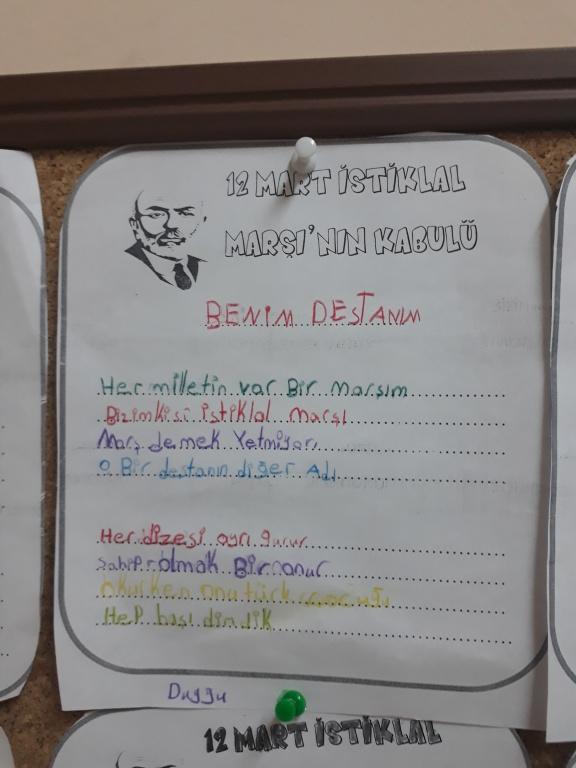 12 MART İSTİKLAL
MARŞI'NIN KABULÜ
BENİM DESTANIM
Her milletin var Bir marşım
Bizimkisi istiklal marşı
Marş demek Yetmiyor
O Bir destanın diğer Adı
Her dizesi ayrı gurur
sahip olmak Bir onur
Okurken onu türk çocuğu
Hep başı dimdik
Duygu
12 MART İSTİKLAL